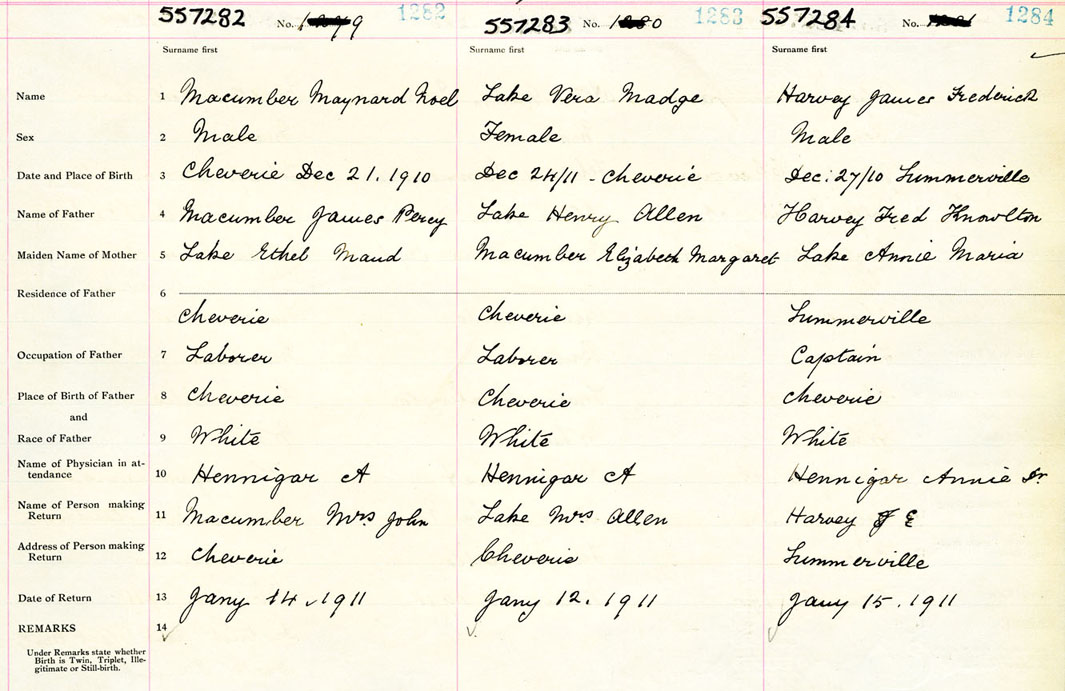 557282 No. 1282 557283 No. 1283 557284 No. 1284
Surname first Surname first Surname first
Name 1 Macumber Maynard Noel Lake Vera Madge Harvey James Frederick
Sex 2 Male Female Male
Date and Place of Birth 3 Cheverie Dec 21. 1910 Dec 24/11 - Cheverie Dec: 27/10 Summerville
Name of Father 4 Macumber James Percy Lake Henry Allen Harvey Fred Knowlton
Maiden Name of Mother 5 Lake Ethel Maud Macumber Elizabeth Margaret Lake Annie Maria
Residence of Father 6
Cheverie Cheverie Summerville
Occupation of Father 7 Laborer Laborer Captain
Place of Birth of Father 8 Cheverie Cheverie Cheverie
and
Race of Father 9 White White White
Name of Physician in at-
tendance 10 Hennigar A Hennigar A Hennigar Annie Dr
Name of Person making
Return 11 Macumber Mrs John Lake Mrs Allen Harvey J E
Address of Person making
Return 12 Cheverie Cheverie Summerville
Date of Return 13 Jany 14. 1911 Jany 12. 1911 Jany 15. 1911
REMARKS 14
Under Remarks state whether
Birth is Twin, Triplet, Ille-
gitimate or Still-birth.